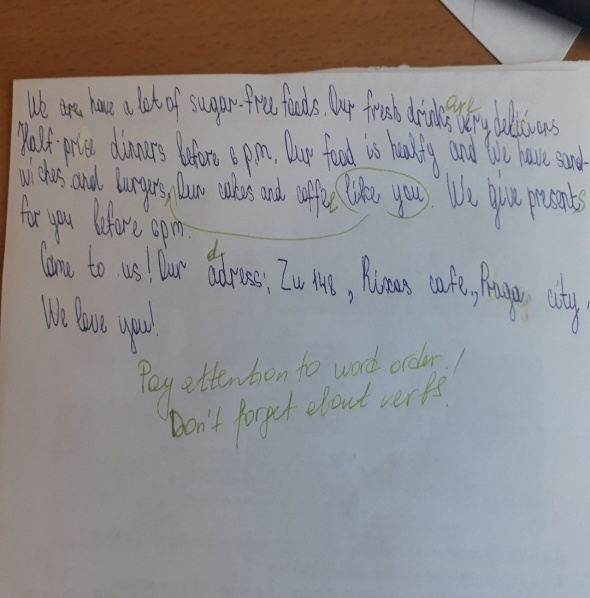 We are have a lot of sugar-free foods. Our fresh drinks are very delicions
Half-prise dinners before 6 p.m. Our food is healfy and We have sand-
wiches and burgers, Our cakes and coffee like you. We give presents
for you before 6pm.
Come to us! Our adress: Zu 148, Rixos cafe., Praga city,
d
We love you!
Pay attention to word order!
Don't forget about verbs!